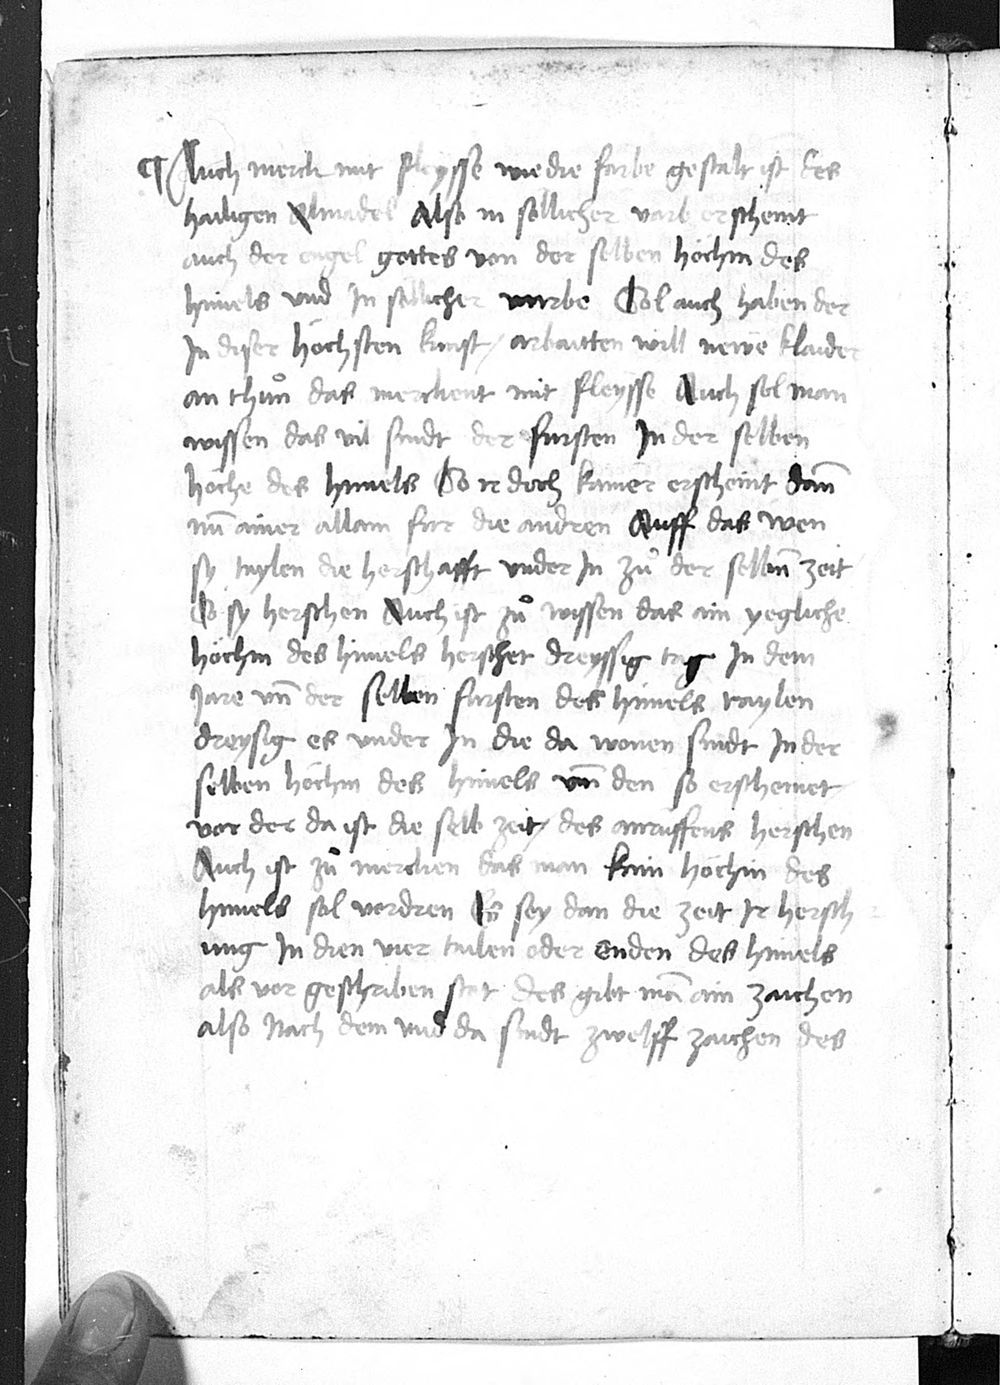 ¶ Auch merck mit fleysse wie die farbe gestalt ist des
hailigen Almadel Also in söllicher varb erscheint
auch der engel gottes von der selben höchin des
himels vnd In söllicher varbe Sol auch haben der
In diser höchsten kunst / arbaitten will newe klaider
an thůn das merckent mit fleysse Auch sol man
wissen das vil sindt der fursten In der selben
höche des himels So ir doch kainer erscheint dañ
nuͦ ainer allain fur die andren Auff das wen
sy taylen die herschafft vnder In zů der selbñ zeit
So sy herschen Auch ist zů wissen das ain yegliche
höchin des himels herschet dreyssig tag In dem
Jare vñ der selben fursten des himels taylen
dreysig es vnder In die da wonen sindt In der
selben höchin des himels vñ den so erscheinet
vor der da ist die selb zeit / des anruffens herschen
Auch ist zů mercken das man kain höchin des
himels sol vordren Es sey dan die zeit Ir hersch
ung In dien vier tailen oder enden des himels
als vor geschriben stet des gibt mā ain zaichen
also Nach dem vnd da sindt zwelff zaichen des